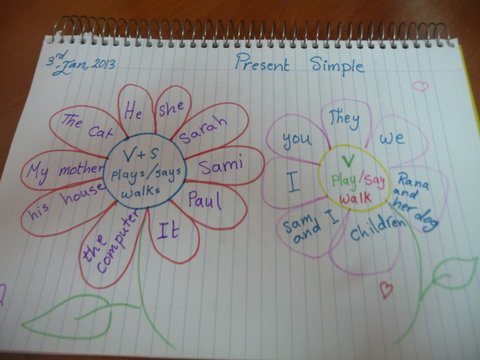 3rd Jan, 2013
Present Simple
He
she
Sarah
Sami
Paul
It
the computer
his house
My mother
The cat
V+s
plays/says
walks
They
we
Rana
and
her dog
children
Sam
and I
I
you
V
play/say
walk